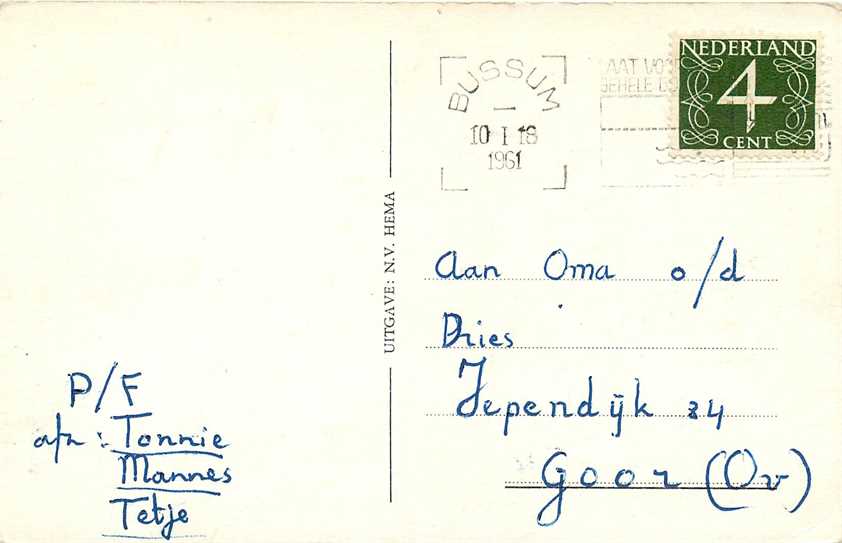 NEDERLAND
4
CENT
BUSSUM
10 I 18
1961
GEHELE
UITGAVE: N.V. HEMA
Aan Oma o/d
Dries
Iependijk 34
Goor (Ov)
P/F
afz: Tonnie
Mannes
Tetje